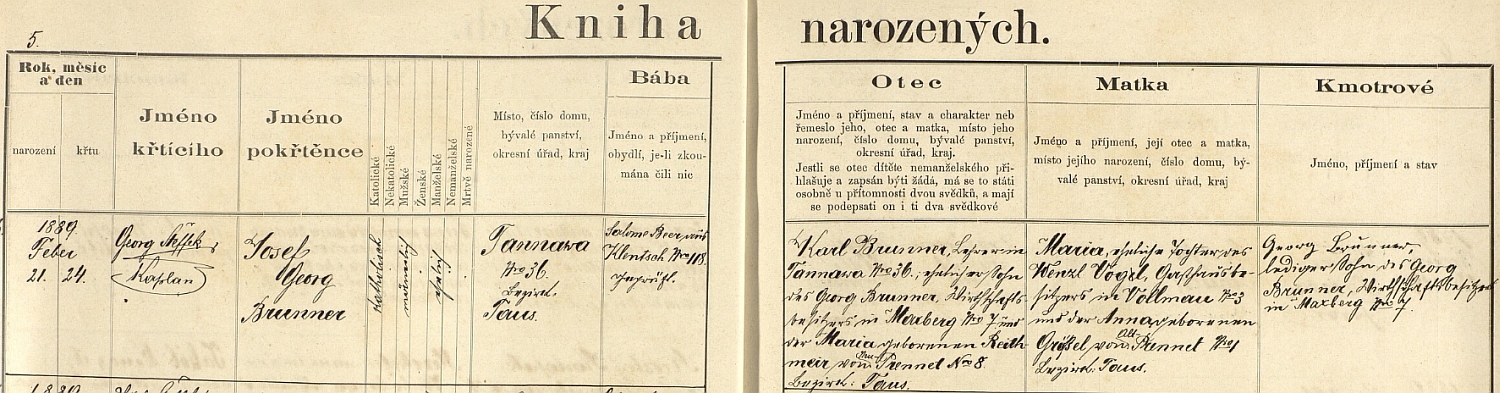 5.
Kniha narozených.
Rok, měsíc
a den
narození
křtu
Jméno
křtícího
Jméno
pokřtěnce
Katolické
Nekatolické
Mužské
Ženské
Manželské
Nemanželské
Mrtvě narozené
Místo, číslo domu,
bývalé panství,
okresní úřad, kraj
Bába
Jméno a příjmení,
obydlí, je-li zkou-
mána čili nic
Otec
Jméno a příjmení, stav a charakter neb
řemeslo jeho, otec a matka, místo jeho
narození, číslo domu, bývalé panství,
okresní úřad, kraj.
Jestli se otec dítěte nemanželského při-
hlašuje a zapsán býti žádá, má se to státi
osobně u přítomnosti dvou svědků, a mají
se podepsati on i ti dva svědkové
Matka
Jméno a příjmení, její otec a matka,
místo jejího narození, číslo domu, bý-
valé panství, okresní úřad, kraj
Kmotrové
Jméno, příjmení a stav
1889
Feber
21. 24.
Georg
Kaplan
Josef
Georg
Brunner
katholisch
männlich
ehelich
Tannawa
Nro 36.
Bezirk
Taus.
Salome Beer, aus
Klentsch Nro 118
geprüft.
Karl Brunner, Lehrer in
Tannawa Nro 36., ehelicher Sohn
des Georg Brunner, Wirthschafts
besitzers in Maxberg Nro 7 und
der Maria geborenen Reith
meir vom Neu Prennet Nro 8.
Bezirk: Taus.
Maria, eheliche Tochter des
Wenzl Vogel, Gasthausbe-
sitzers in Vollmau Nro 3
und der Anna, geborenen
Größel, vom Alt Prennet Nro 1
Bezirk: Taus.
Georg Brunner,
lediger Sohn des Georg
Brunner, Wirthschaftsbesitzer
in Maxberg Nro 7.
1889